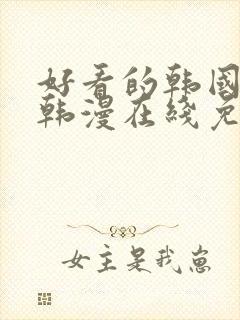 好看的韩国
韩漫在线免
女主是我崽